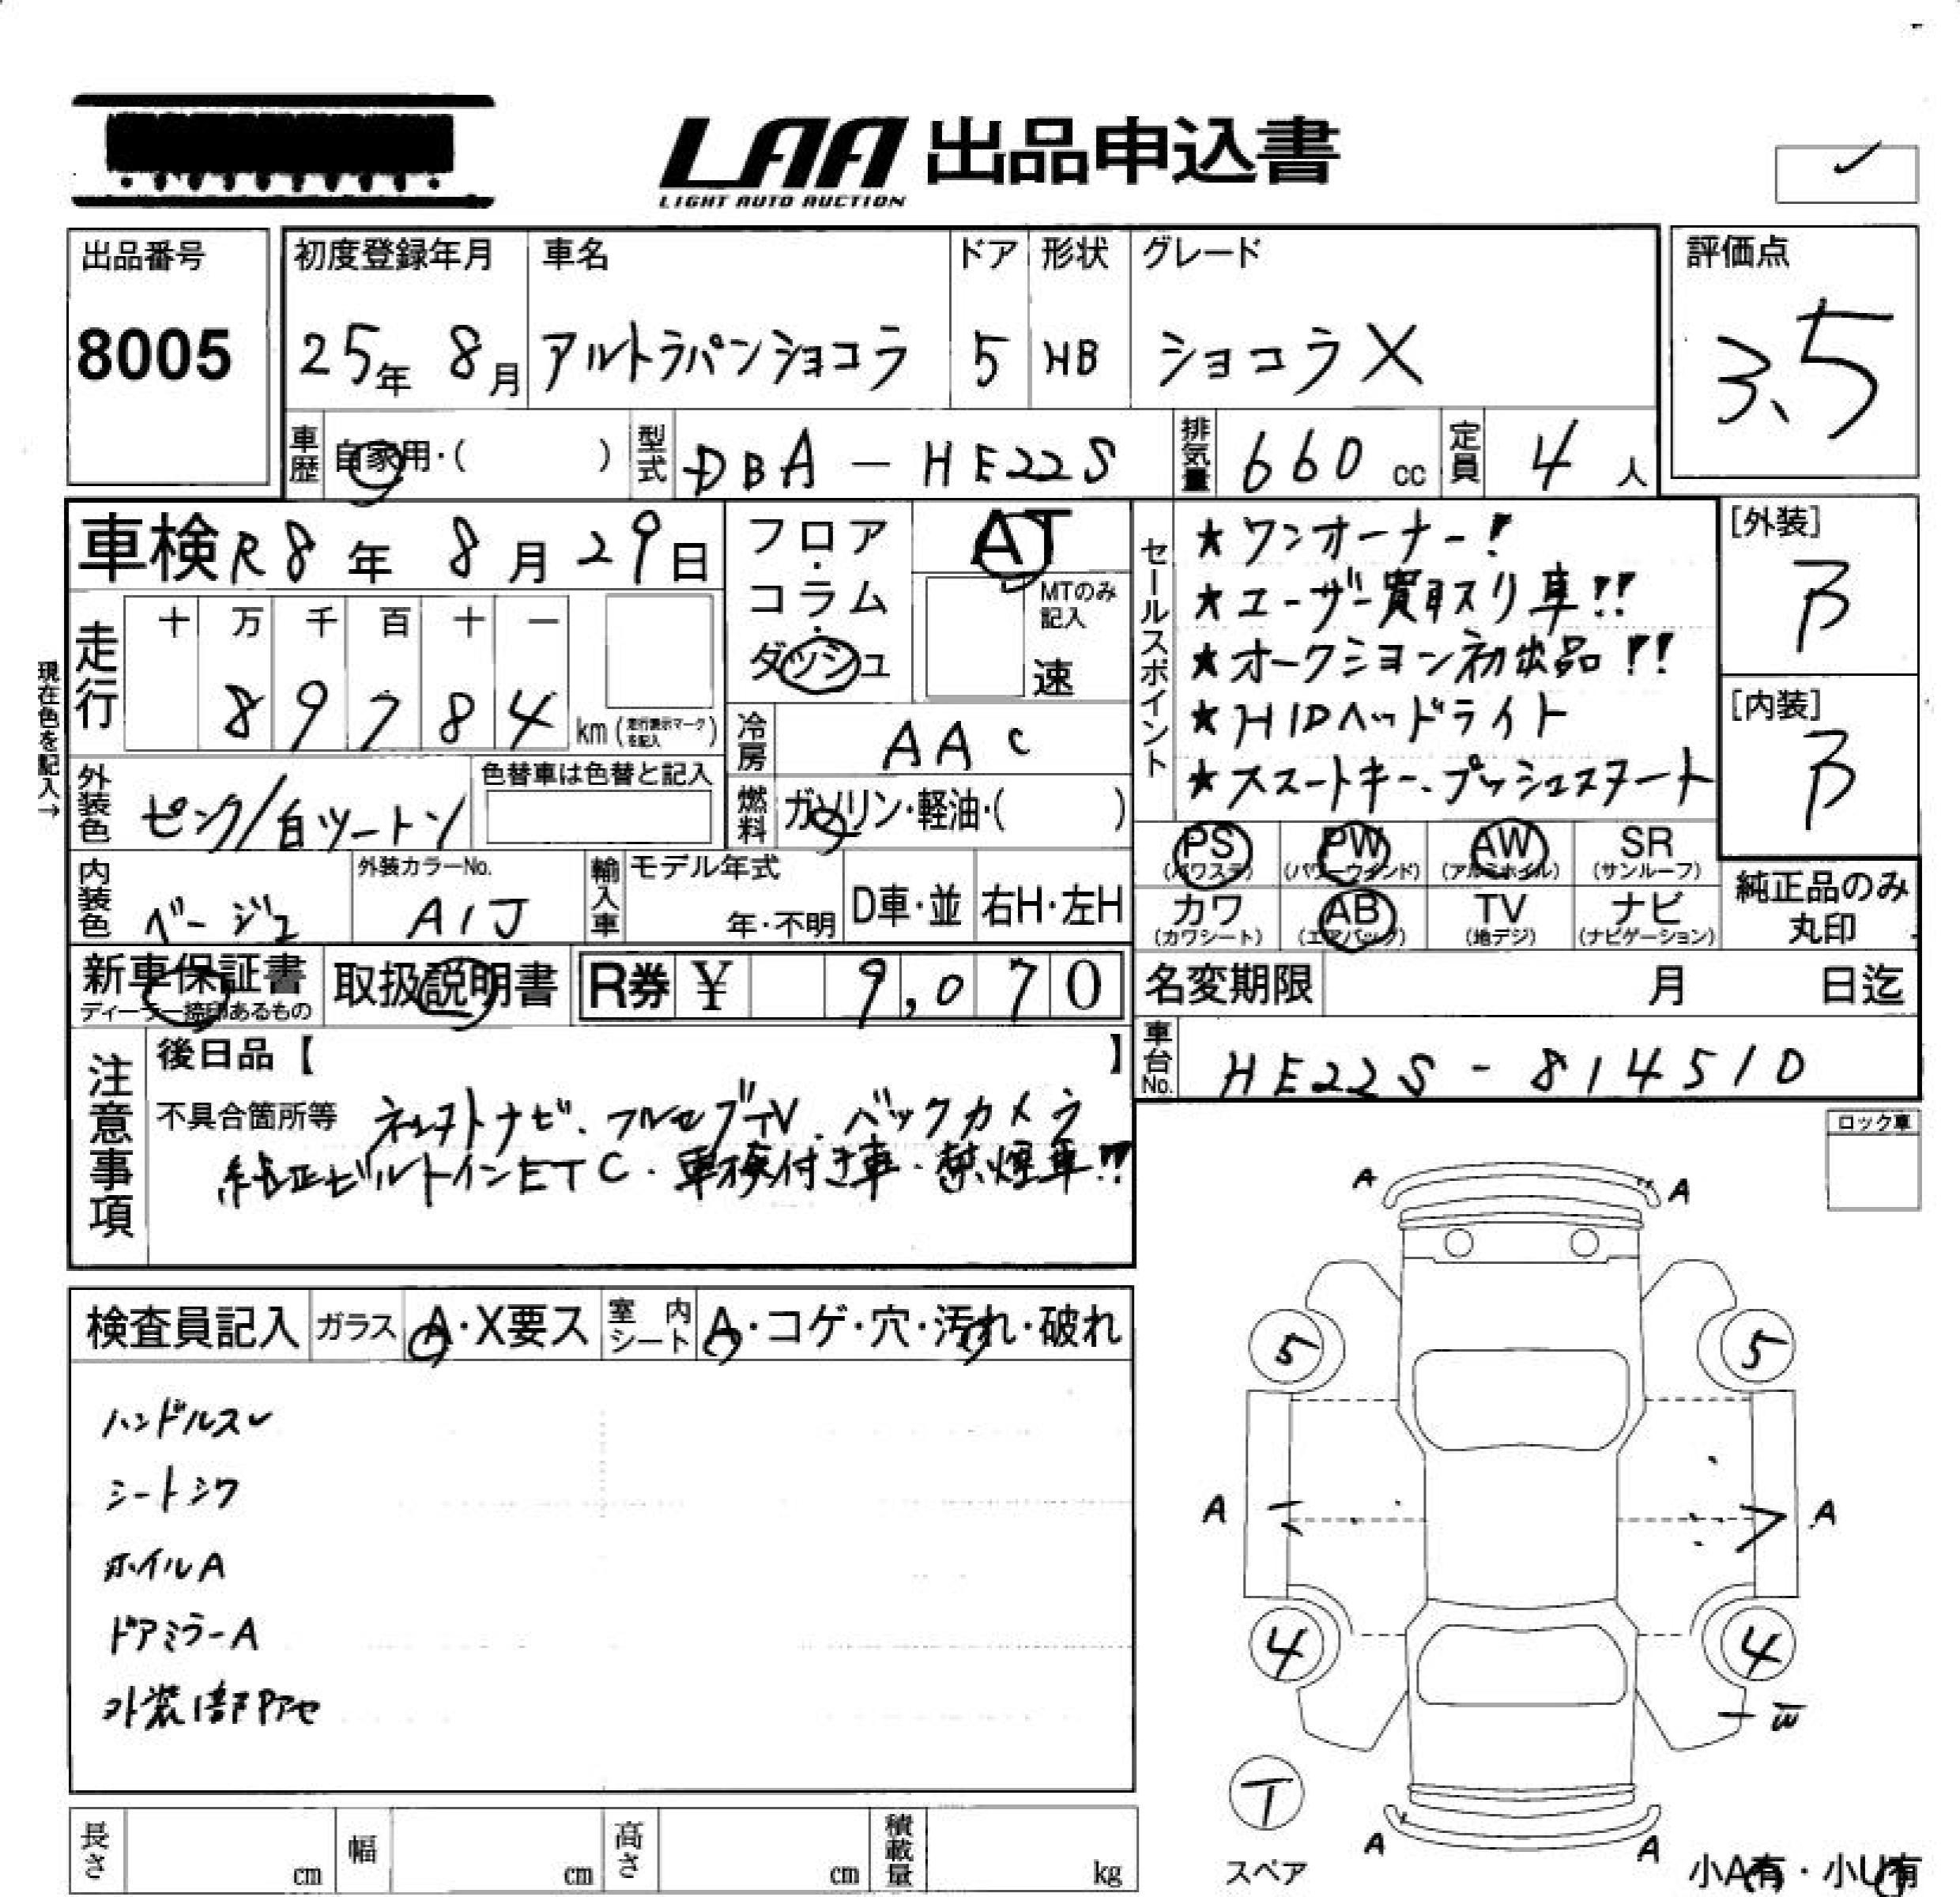 LAA 出品申込書
LIGHT AUTO AUCTION
出品番号
8005
初度登録年月 車名 ドア 形状 グレード
25年 8月 アルトラパンショコラ 5 HB ショコラX
評価点
3.5
車歴 自家用・( ) 型式 DBA - HE22S 排気量 660 cc 定員 4 人
車検 R8年 8月 29日
フロア・コラム・ダッシュ
AT
MTのみ記入
速
走行
十 万 千 百 十 一
8 9 7 8 4 km (走行表示マークを記入)
現在色を記入→
冷房 AAC
外装色 ピンク/白ツートン
色替車は色替と記入
燃料 ガソリン・軽油・( )
内装色 ベージュ
外装カラーNo.
A1J
輸入車 モデル年式
年・不明 D車・並 右H・左H
セールスポイント
★ワンオーナー!
★ユーザー買取スリ車!!
★オークション初出品!!
★HIDヘッドライト
★スマートキー、プッシュスタート
[外装]
B
[内装]
B
PS (パワステ) PW (パワーウインド) AW (アルミホイル) SR (サンルーフ)
カワ (カワシート) AB (エアバッグ) TV (地デジ) ナビ (ナビゲーション)
純正品のみ丸印
新車保証書
ディーラー捺印あるもの
取扱説明書
R券 ¥ 9,070
名変期限 月 日迄
車台No. HE22S - 814510
注意事項
後日品【 】
不具合箇所等 ナビ、フルセグTV、バックカメラ
純正ビルトインETC・車検付き車・禁煙車!!
ロック車
検査員記入 ガラス A・X要ス 室内シート A・コゲ・穴・汚れ・破れ
ハンドルスレ
シートシワ
ホイルA
ドアミラーA
外装
A A
5 5
A A
4 4
W
T
スペア
A A
小A有・小U有
長さ cm 幅 cm 高さ cm 積載量 kg